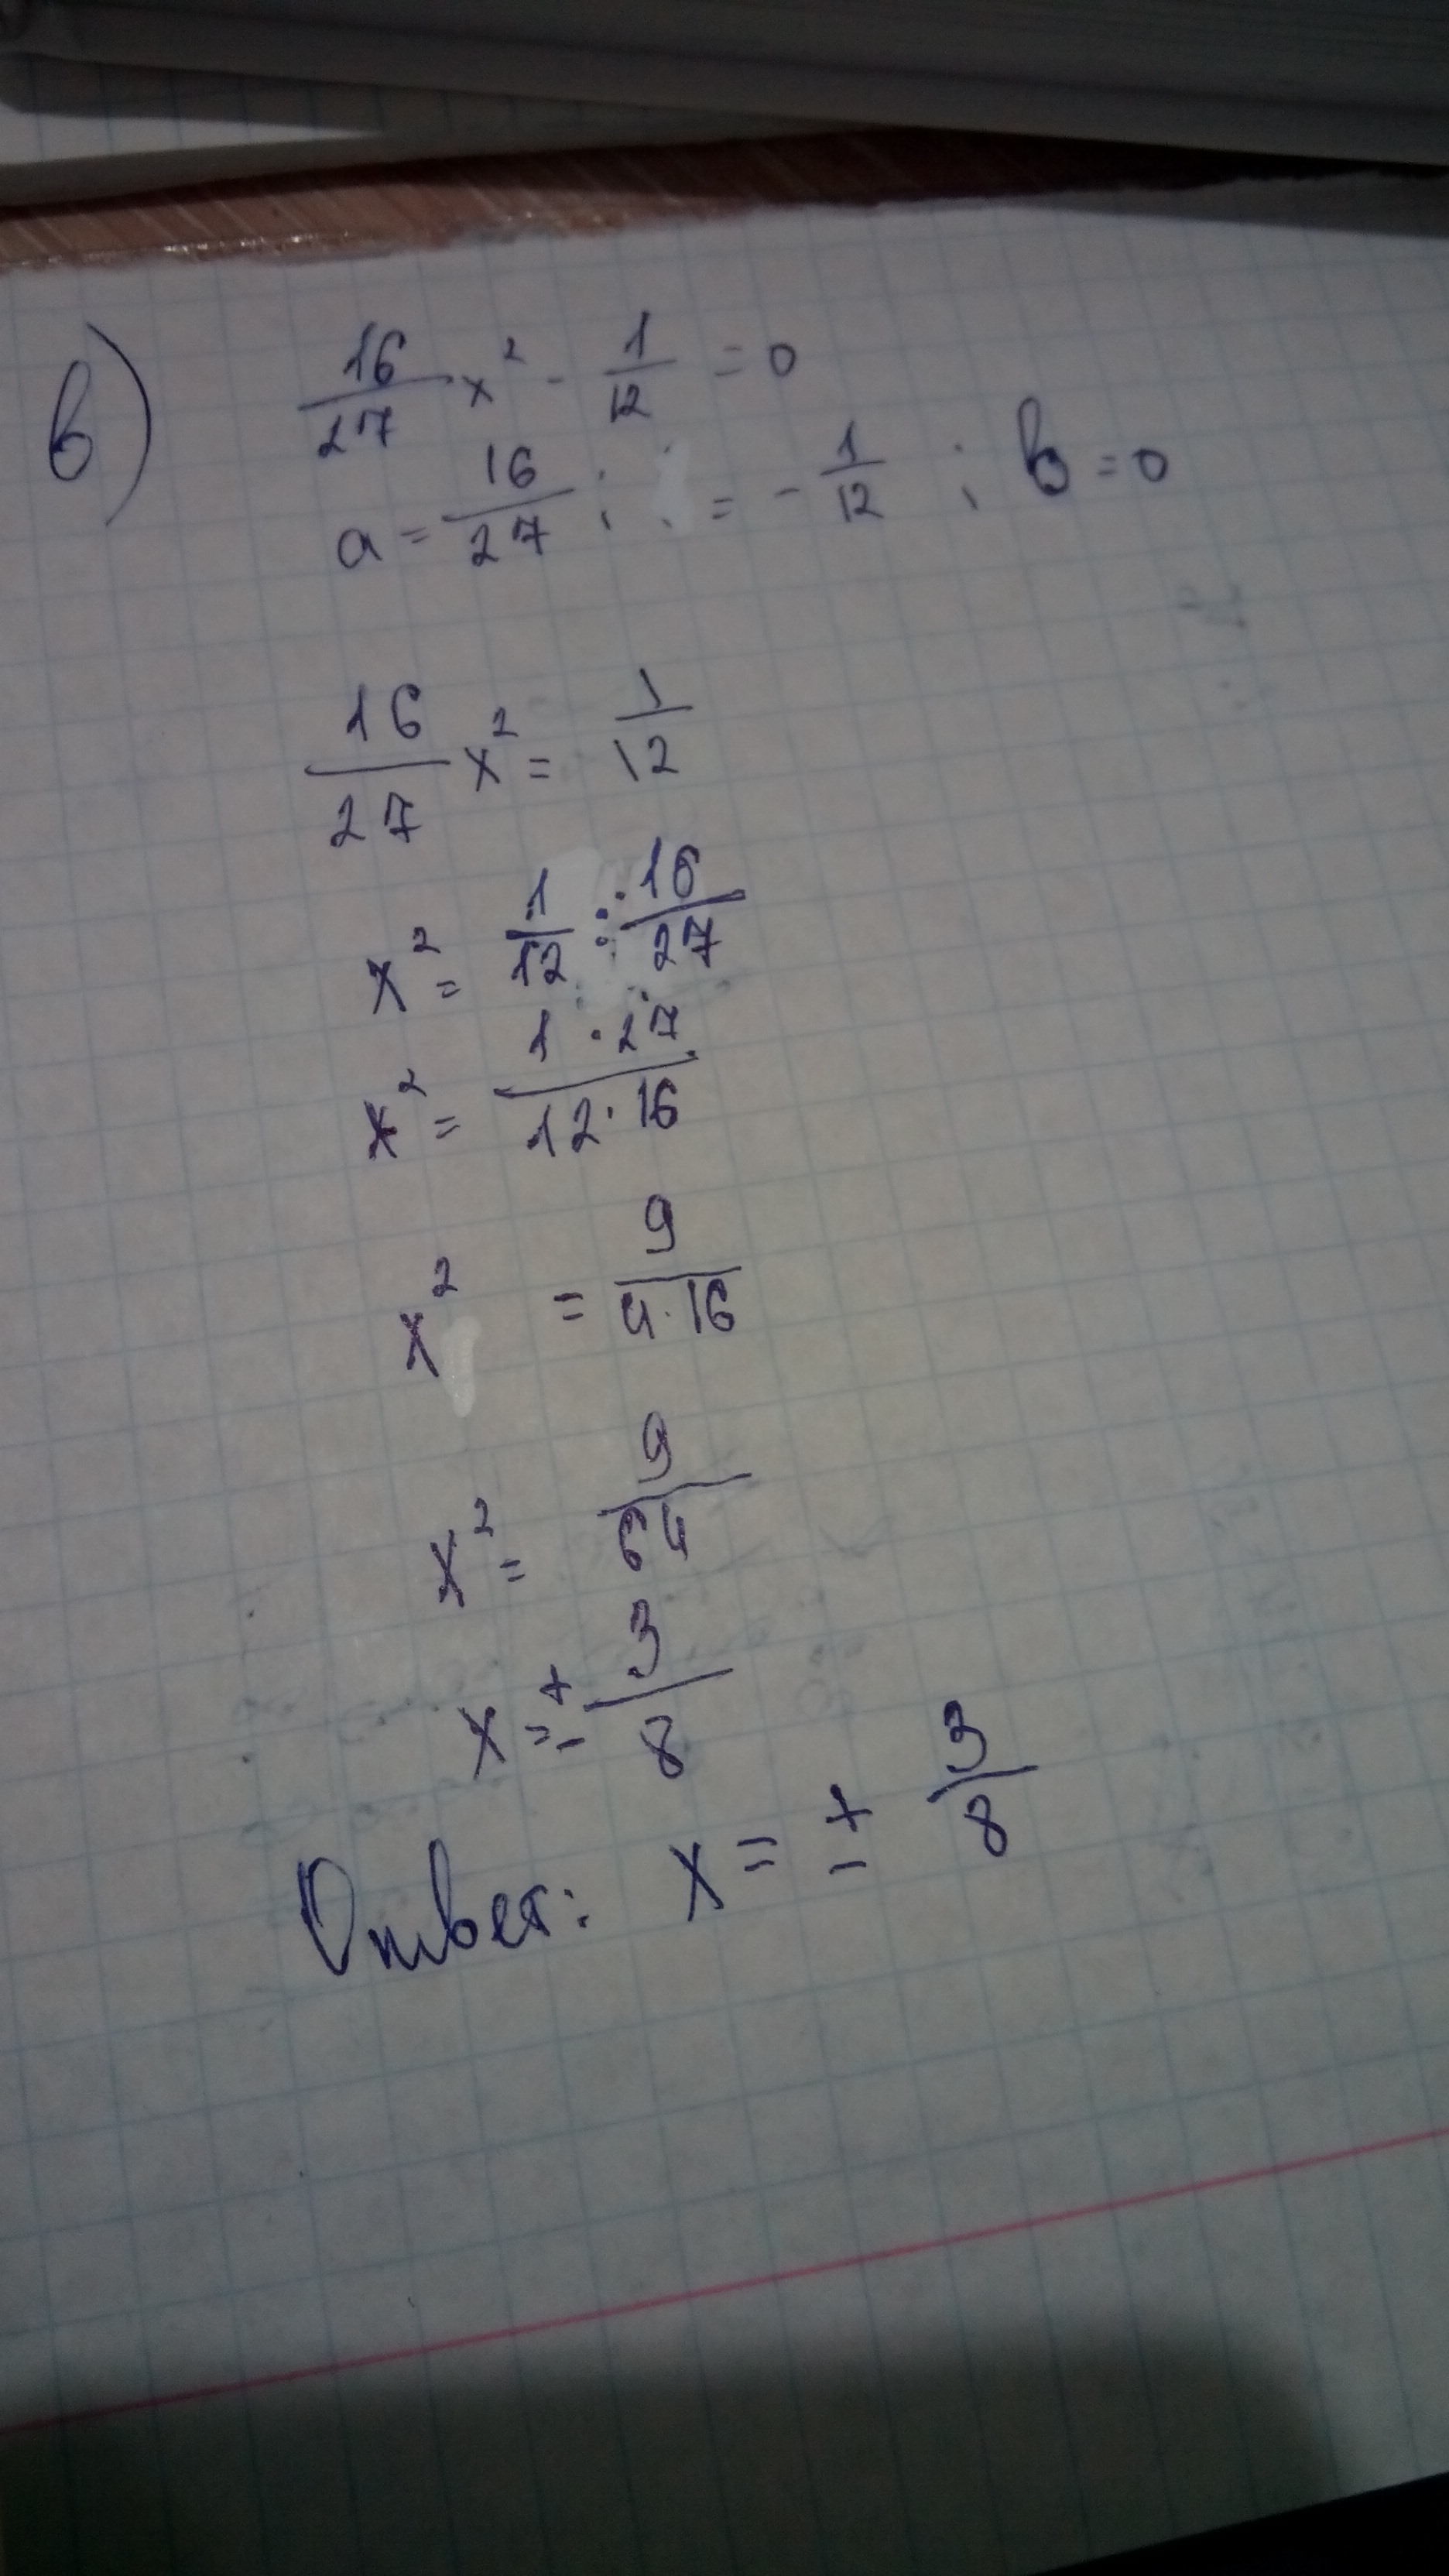 в) 16/27 x² - 1/12 = 0
a = 16/27 ; = - 1/12 ; b = 0
16/27 x² = 1/12
x² = 1/12 : 16/27
x² = 1 · 27 / 12 · 16
x² = 9 / 4 · 16
x² = 9/64
x = ± 3/8
Ответ: x = ± 3/8